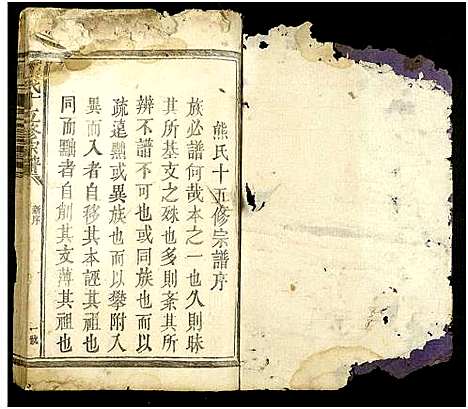 熊氏十五修宗譜序
族必譜何哉本之一也久則昧
其所基支之殊也多則紊其所
辨不譜不可也或同族也而以
疏遠黜或異族也而以攀附入
異而入者自移其本誣其祖也
同而黜者自削其支薄其祖也
氏十五修宗譜
新序
一